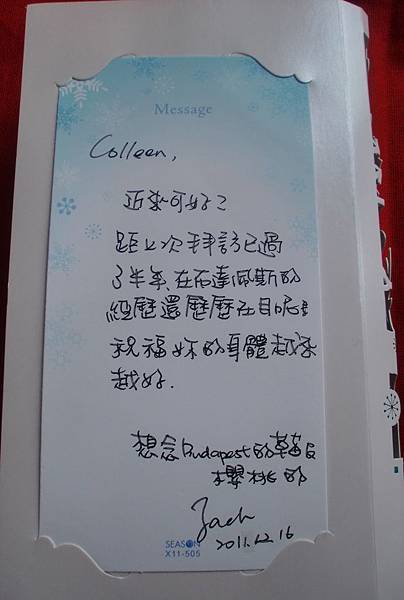 Message
Colleen,
近來可好？
距上次拜訪已過
了半年、在布達佩斯的
經歷還歷歷在目呢!!
祝福妳的身體越來
越好.
想念Budapest的草莓及
櫻桃的
Zach
2011.12.16
SEASON
X11-505